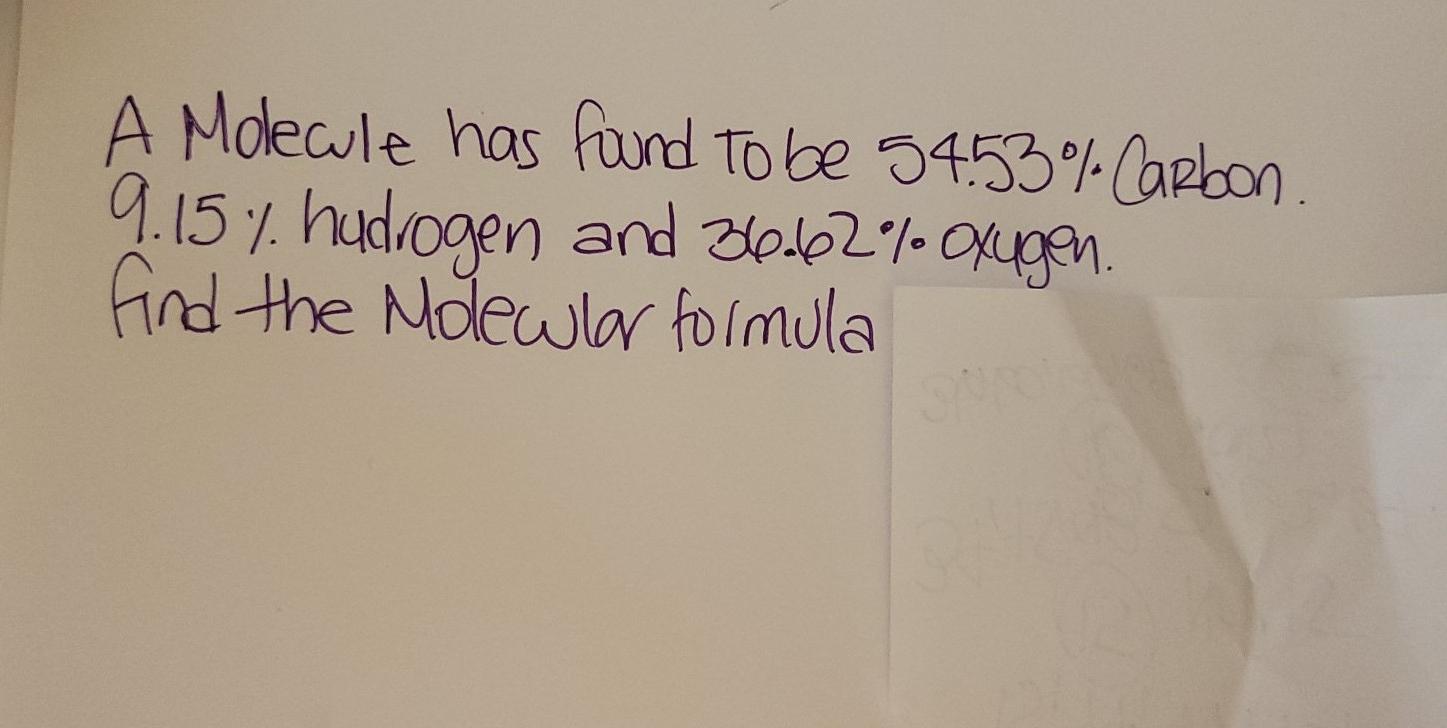 A Molecule has found To be 54.53% Carbon.
9.15% hydrogen and 36.62% oxygen.
find the Molecular formula